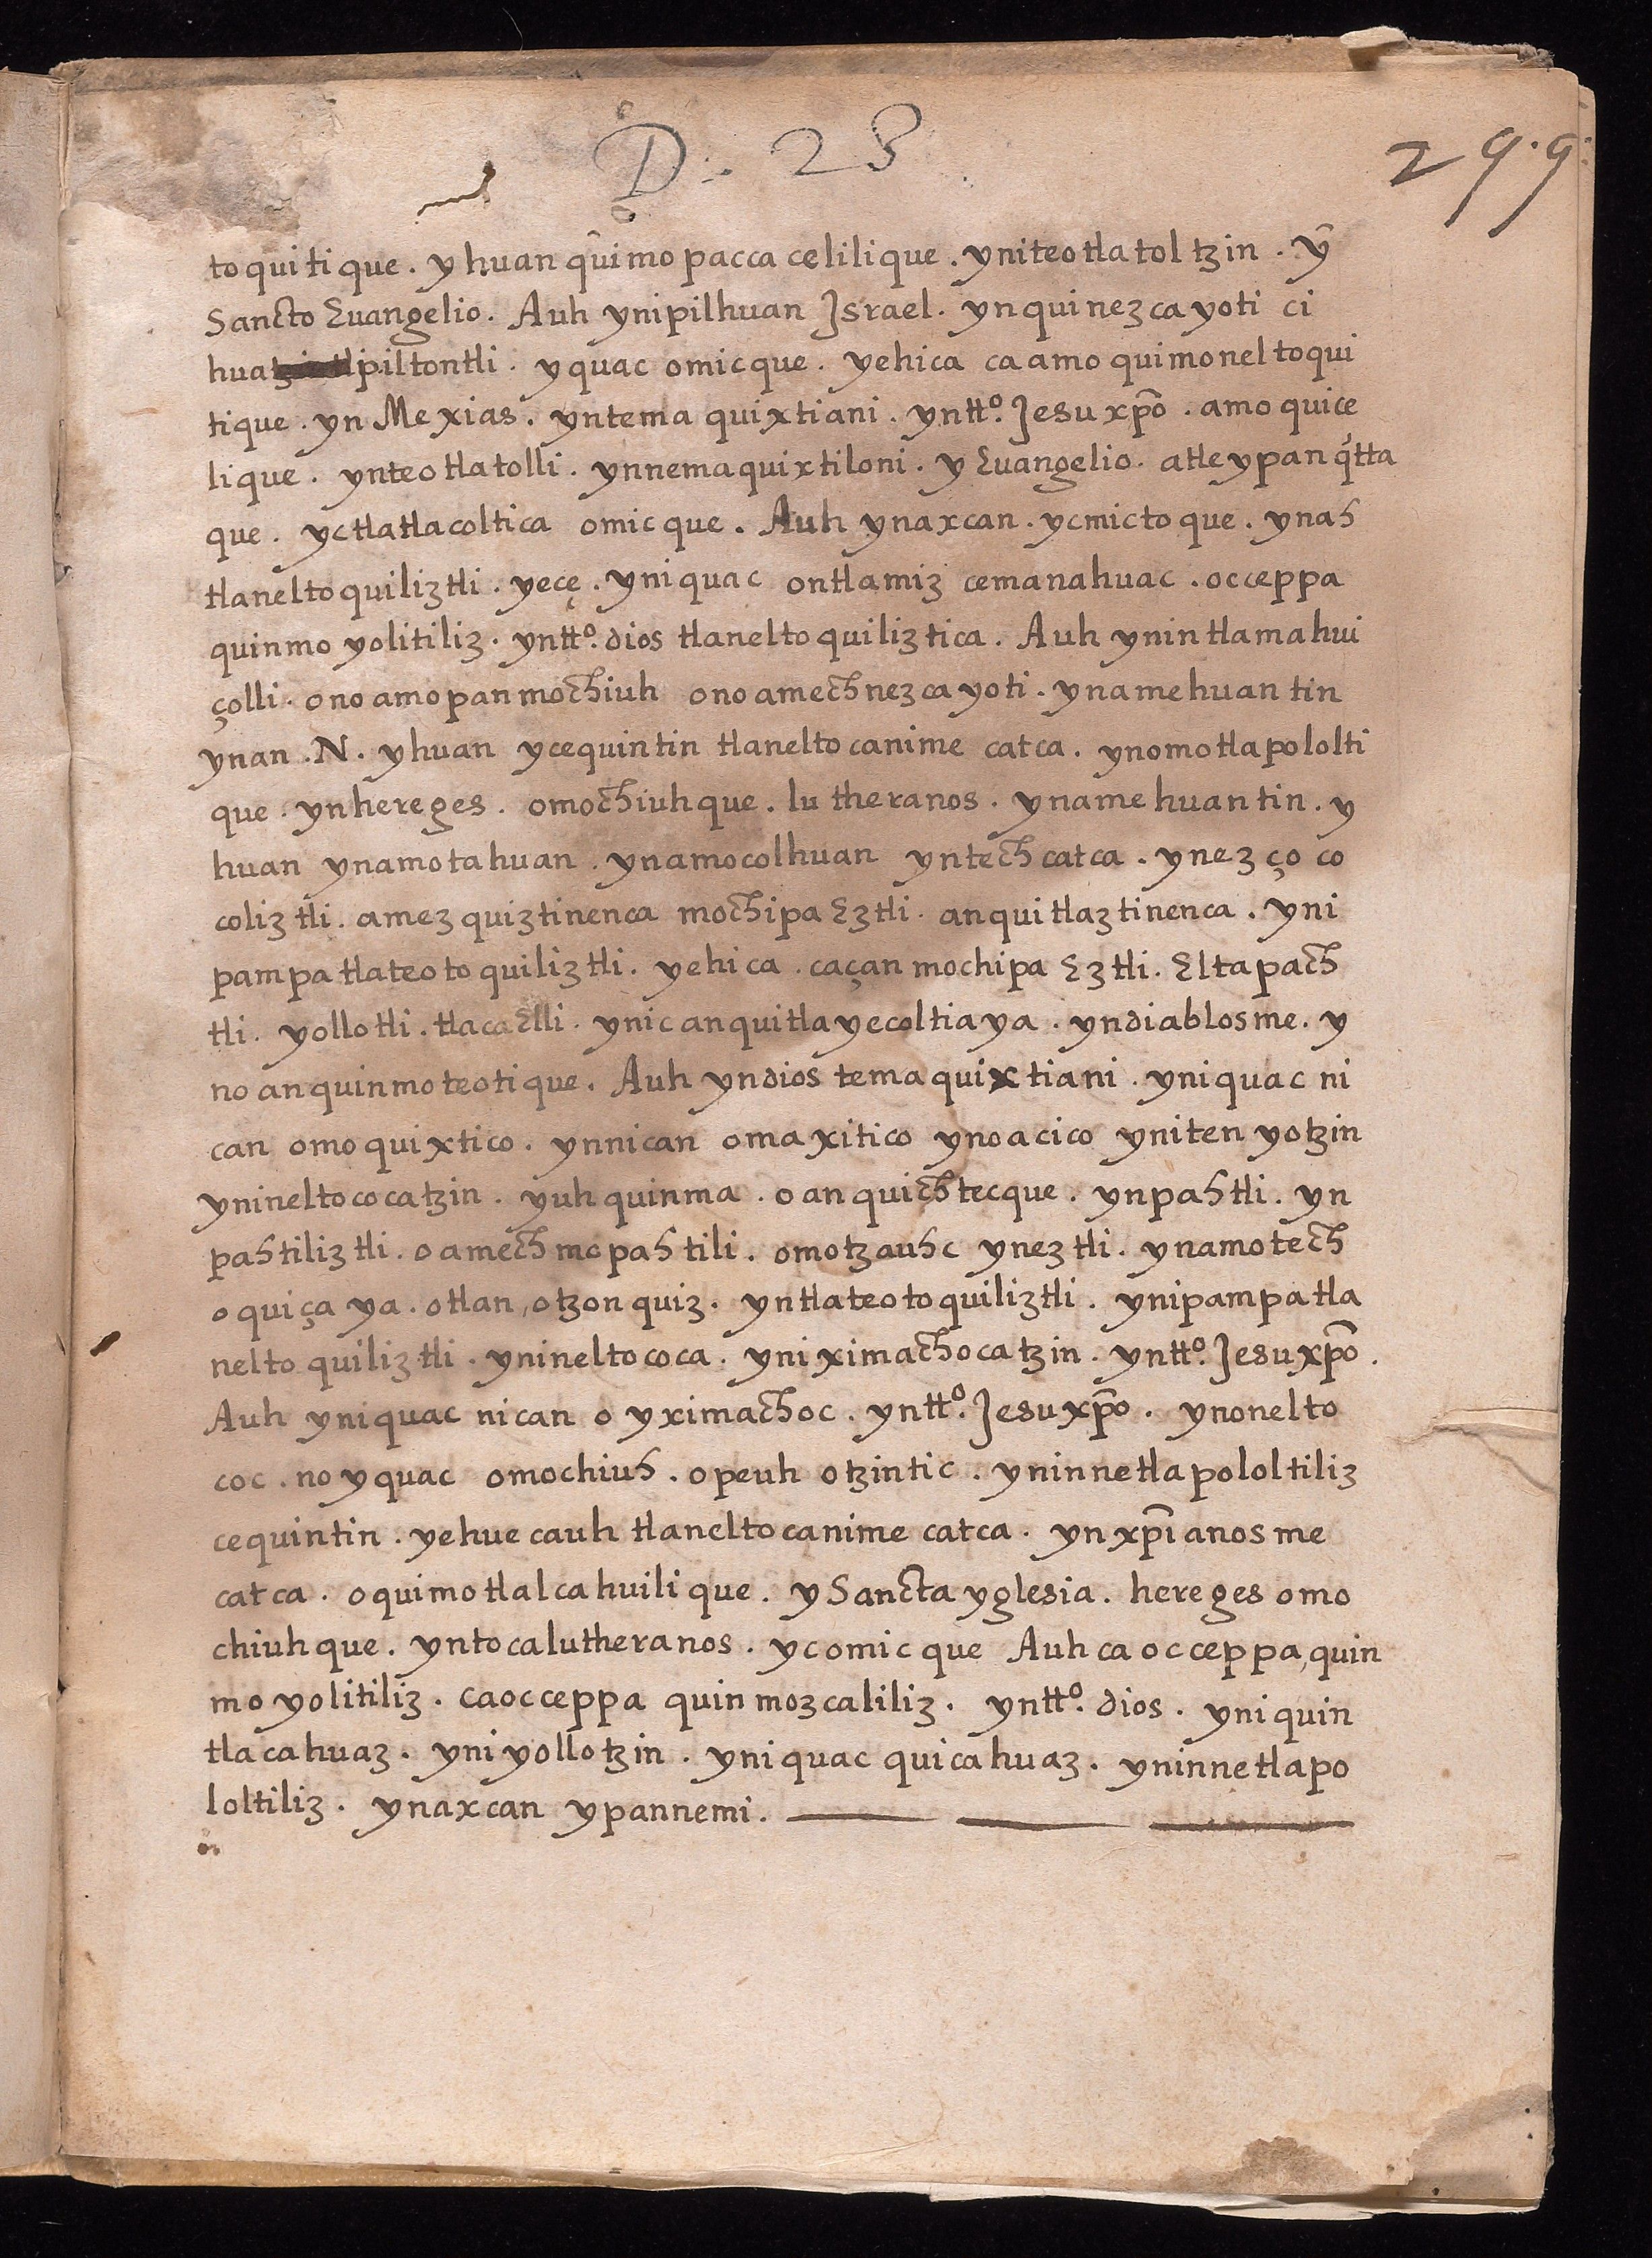 D. 28
299
toquitique. yhuan qûimo pacca celilique. yniteotlatoltzin. ỹ
Sancto Euangelio. Auh ynipilhuan Jsrael. ynquinezcayoti ci
hua piltontli. yquac omicque. yehica ca amo quimoneltoqui
tique. yn Mexias. yntemaquixtiani. yntt.º Jesu xp̄o. amo quice
lique. ynteotlatolli. ynnemaquixtiloni. y Euangelio. atle ypan q́tta
que. yctlatlacoltica omicque. Auh ynaxcan. ycmictoque. ynah
tlaneltoquiliztli. yecę. yniquac ontlamiz cemanahuac. occeppa
quinmo yolitiliz. yntt.º dios tlaneltoquiliztica. Auh ynin tlamahui
çolli. ono amopan mochiuh ono amechnezcayoti. ynamehuantin
ynan .N. yhuan ycequintin tlaneltocanime catca. ynomotlapololti
que. ynhereges. omochiuhque. lutheranos. ynamehuantin. y
huan ynamotahuan. ynamocolhuan yntech catca. ynezço co
coliztli. amezquiztinenca mochipa Eztli. anquitlaztinenca. yni
pampa tlateotoquiliztli. yehica. caçan mochipa Eztli. Eltapach
tli. yollotli. tlacaElli. ynic anquitlayecoltiaya. yndiablosme. y
no anquinmoteotique. Auh yndios temaquixtiani. yniquac ni
can omoquixtico. ynnican omaxitico ynoacico yniten yotzin
ynineltococatzin. yuhquinma. oanquichtecque. ynpahtli. yn
pahtiliztli. oamechmopahtili. omotzauhc yneztli. ynamotech
oquiçaya. otlan, otzonquiz. yntlateotoquiliztli. ynipampa tla
neltoquiliztli. ynineltococa. yniximachocatzin. yntt.º Jesuxp̄o.
Auh yniquac nican o yximachoc. yntt.º Jesuxp̄o. ynonelto
coc. no yquac omochiuh. opeuh otzintic. yninnetlapololtiliz
cequintin. yehuecauh tlaneltocanime catca. ynxp̄ianosme
catca. oquimotlalcahuilique. y Sancta yglesia. hereges omo
chiuhque. yntoca lutheranos. yc omicque Auh ca occeppa, quin
mo yolitiliz. caocceppa quinmozcaliliz. yntt.º dios. yniquin
tlacahuaz. yniyollotzin. yniquac quicahuaz. yninnetlapo
loltiliz. ynaxcan ypannemi.